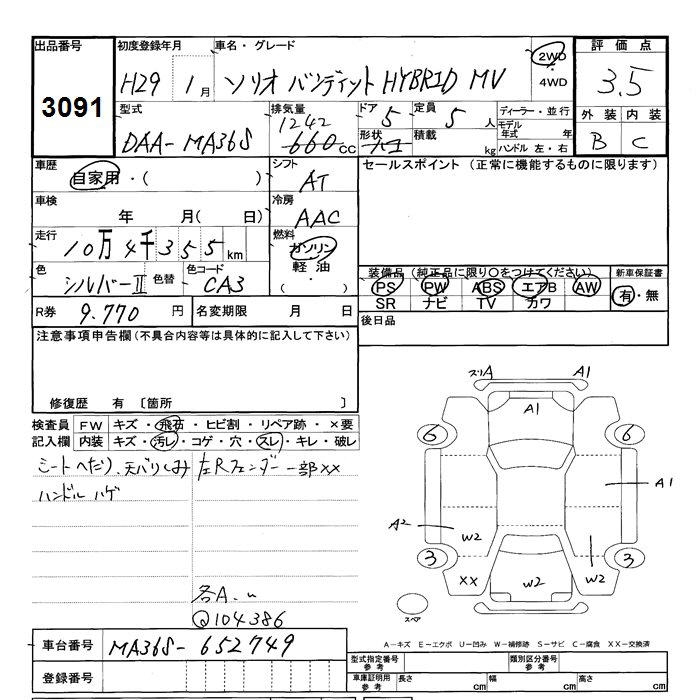 出品番号 初度登録年月 車名・グレード 評価点
3091 H29 1月 ソリオ バンディット HYBRID MV 2WD 4WD 3.5
型式 排気量 ドア 定員 ディーラー・並行 外装 内装
DAA-MA36S 1242 660 cc 5 5人 モデル年式 年 B C
形状 ハコ 積載 kg ハンドル 左・右
車歴 シフト セールスポイント (正常に機能するものに限ります)
自家用・( ) AT
車検 冷房
年 月( 日) AAC
走行 燃料
10万4千355km ガソリン
軽油
色 色替 色コード
シルバーⅡ CA3
装備品 (純正品に限り○をつけてください) 新車保証書
PS PW ABS エアB AW 有・無
SR ナビ TV カワ
R券 9.770 円 名変期限 月 日 後日品
注意事項申告欄(不具合内容等は具体的に記入して下さい)
修復歴 有 〔箇所 〕
検査員 FW キズ・飛石・ヒビ割・リペア跡・×要
記入欄 内装 キズ・汚レ・コゲ・穴・スレ・キレ・破レ
シートへたり、天バリしみ 左Rフェンダー一部××
ハンドルハゲ
各A.
Q104386
スリA A1
A1
6 6
A1
A2 W2
3 3
XX W2 W2
スペア
A-キズ E-エクボ U-凹み W-補修跡 S-サビ C-腐食 XX-交換済
車台番号 MA36S-652749
型式指定番号 参考 類別区分番号 参考
登録番号
車庫証明用 参考 長さ cm 幅 cm 高さ cm